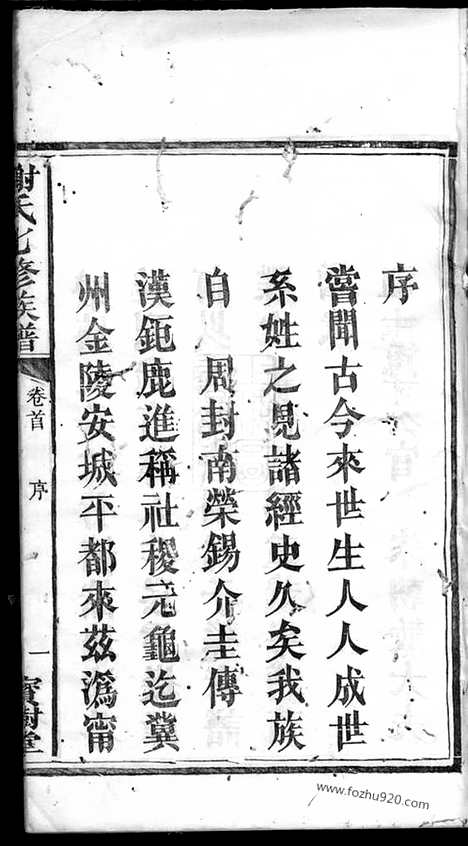 序
嘗聞古今來世生人人成世
系姓之見諸經史久矣我族
自　周封南榮錫介圭傳
漢鉅鹿進稱社稷元龜迄冀
州金陵安城平都來茲溈甯
謝氏七修族譜
卷首
序
一
寶樹堂
www.fozhu920.com